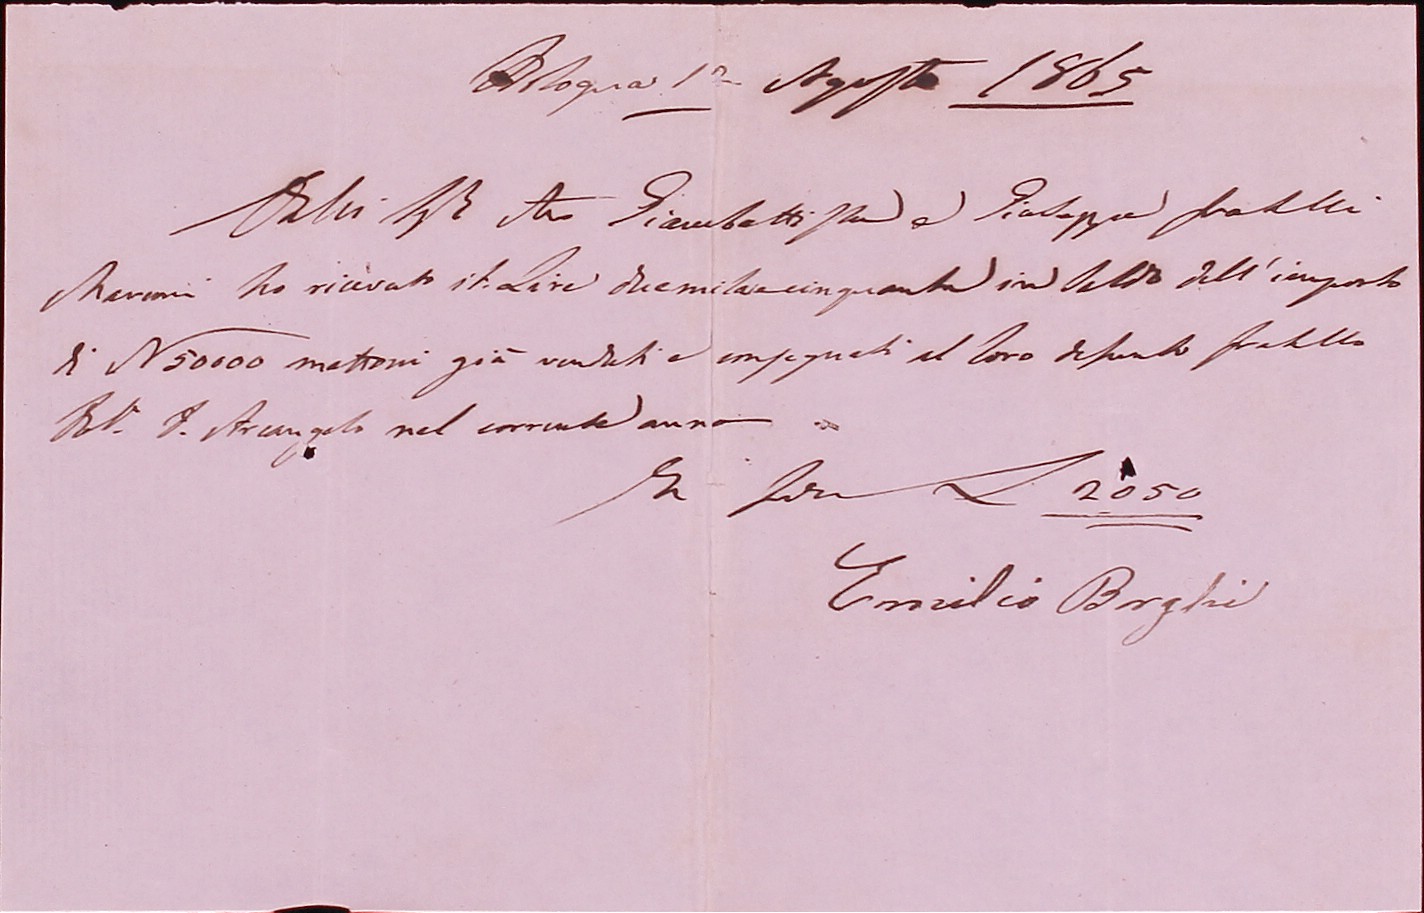 Bologna 1º Agosto 1865
Dalli Giambattista e Giuseppe fratelli
Marconi ho ricevuto it. Lire duemilaecinquanta in saldo dell'importo
di N 50000 mattoni già venduti e consegnati al loro defunto fratello
D. Arcangelo nel corrente anno
In fede L 2050
Emilio Borghi